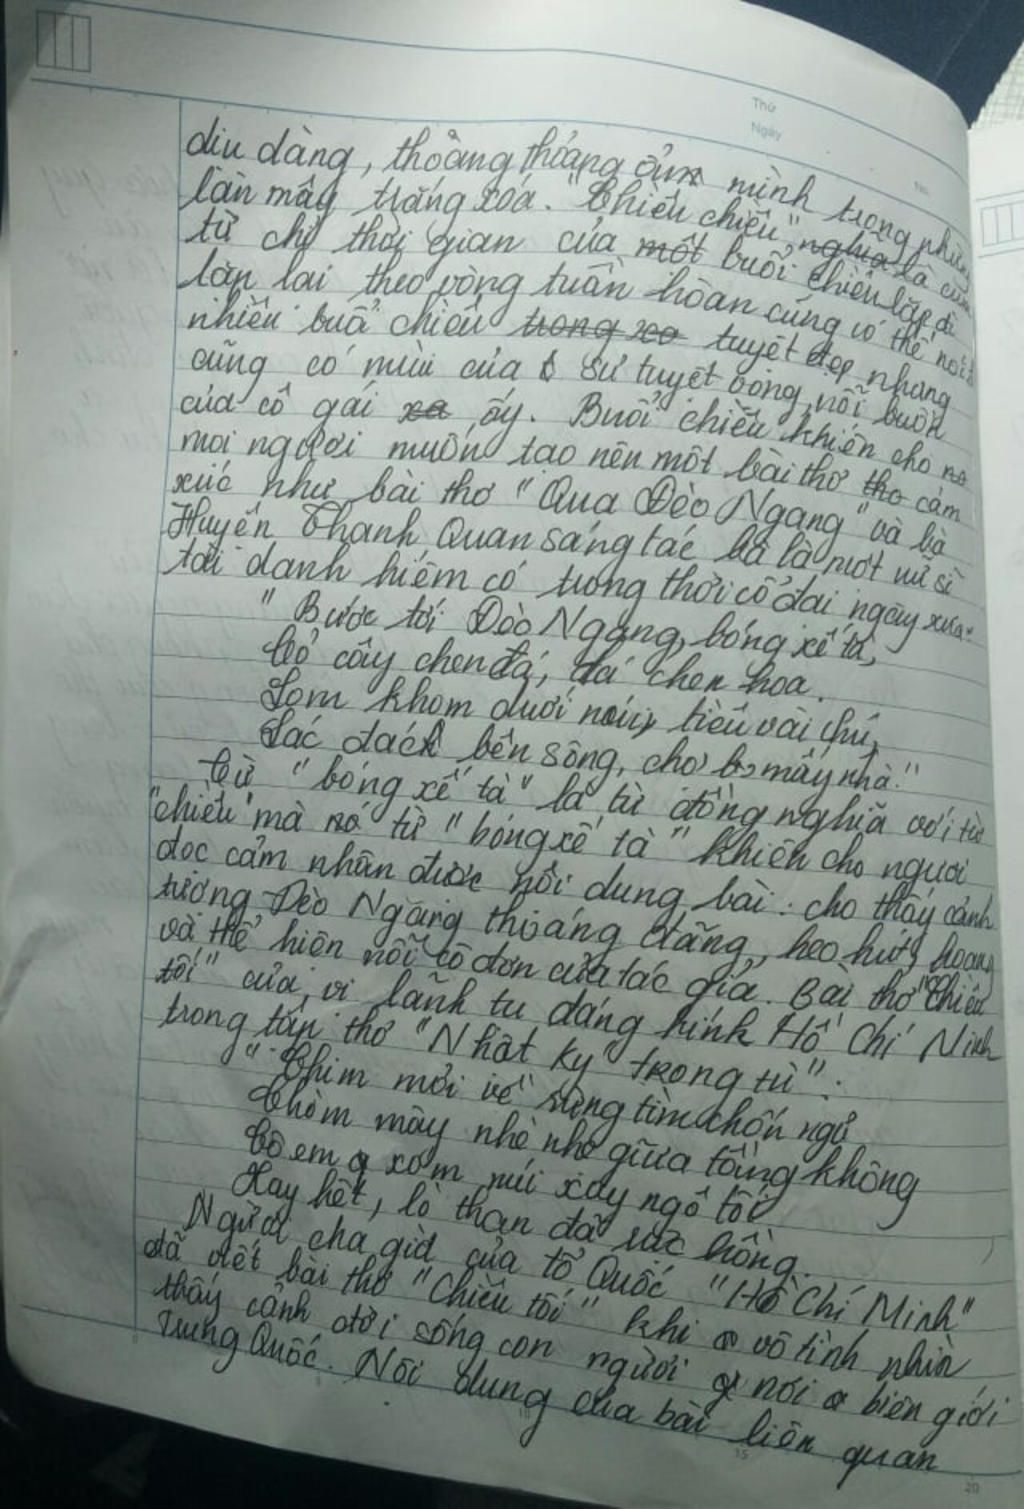 Thứ
Ngày
dịu dàng, thoảng thoảng ẩn mình trong những
làn mây trắng xóa. "Chiều chiều" nghĩa là cụm
từ chỉ thời gian của một buổi chiều lặp đi
lặp lại theo vòng tuần hoàn cũng có thể nói
nhiều buổ chiều trong xo tuyệt đẹp nhưng
cũng có mùi của sự tuyệt vòng, nỗi buồn
của cô gái xa ấy. Buổi chiều khiến cho no
mọi người muốn tạo nên một bài thơ tho cảm
xúc như bài thơ "Qua Đèo Ngang" và bà
Huyện Thanh Quan sáng tác bà là một nữ sĩ
tài danh hiếm có trong thời cổ đại ngày xưa.
" Bước tới Đèo Ngang, bóng xế tà,
Cỏ cây chen đá, đá chen hoa.
Lom khom dưới núi, tiều vài chú,
Lác đách bên sông, chợ mấy nhà."
Từ "bóng xế tà" là từ đồng nghĩa với từ
"chiều" mà nó từ "bóng xế tà" khiến cho người
đọc cảm nhận được nội dung bài: cho thấy cảnh
tượng Đèo Ngang thoáng đãng, heo hút, hoang
và thể hiện nỗi cô đơn của tác giả. Bài thơ "Chiều
tối" của vị lãnh tụ đáng kính Hồ Chí Ninh
trong tập thơ "Nhật ký trong tù":
" Chim mỏi về rừng tìm chốn ngủ
Chòm mây nhè nhẹ giữa tầng không
Cô em xóm núi xay ngô tối
Xay hết, lò than đã rực hồng.
Người cha già của tổ Quốc "Hồ Chí Minh"
đã viết bài thơ "Chiều tối" khi vô tình nhìn
thấy cảnh đời sống con người nơi biên giới
Trung Quốc. Nội dung của bài liên quan
15
20